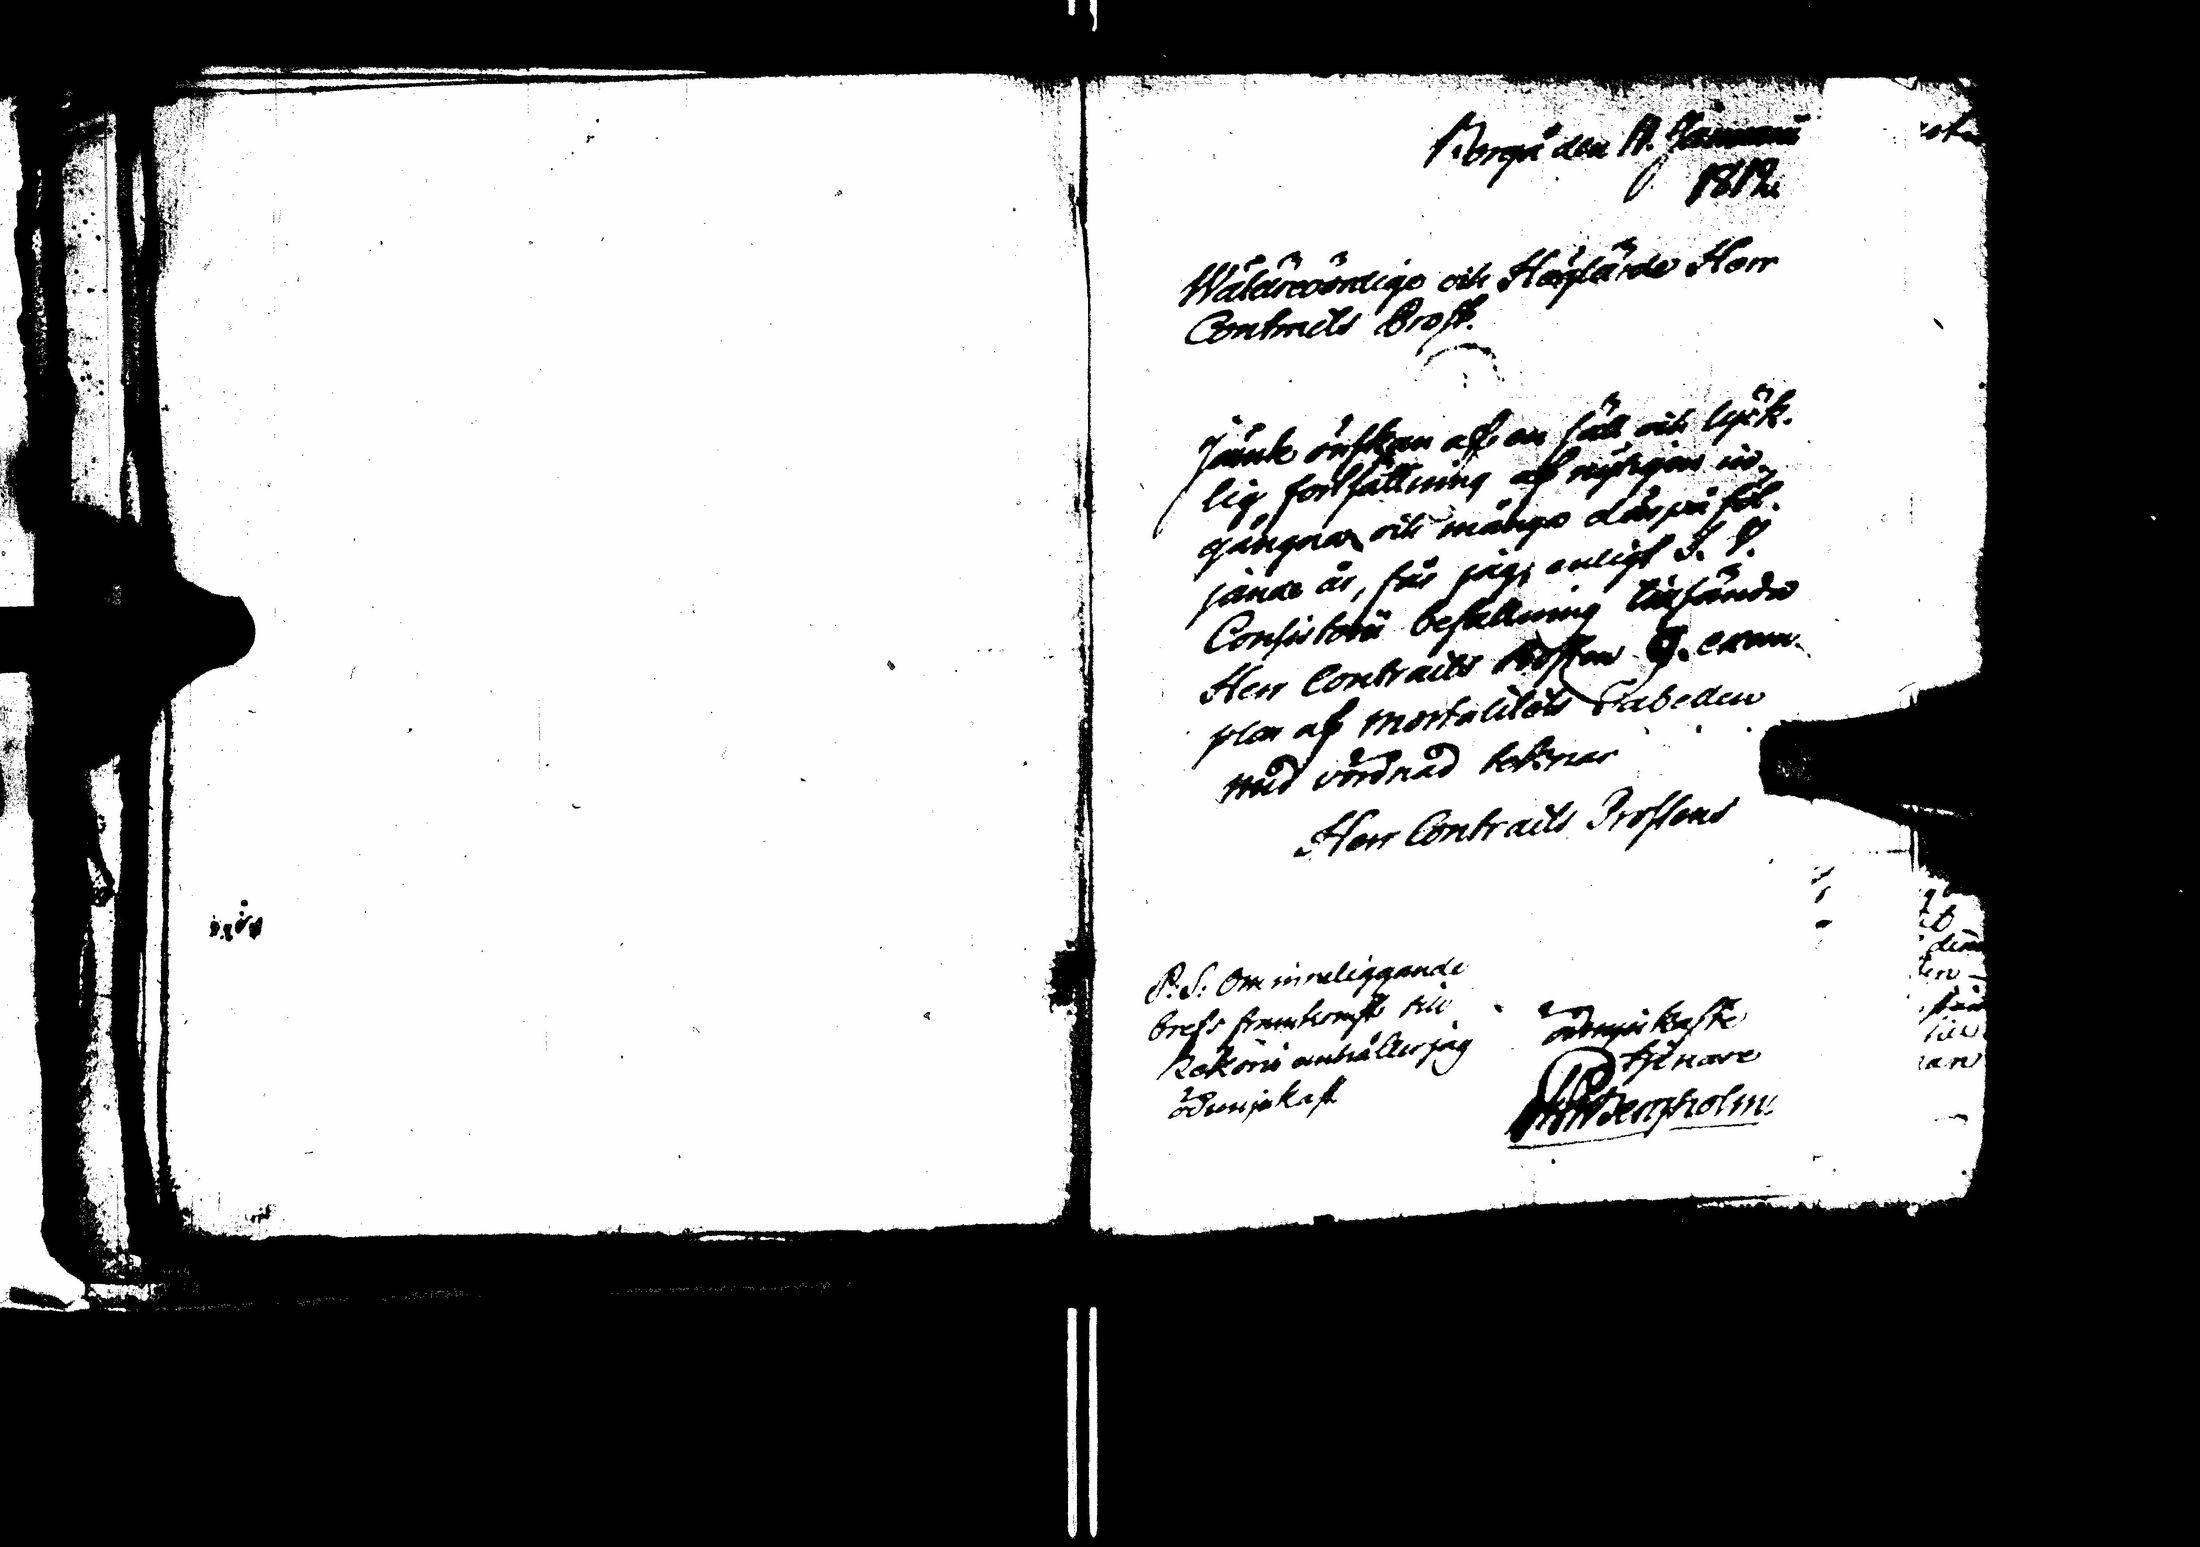 Borgå den 11. Januarii
1812.
Wälärevördige och Höglärde Herr
Contracts Prost.
Jämte önskan af en säll och lyck-
lig fortsättning af nyss
gångna och många derpå föl-
jande år, får jag, enligt
Consistorii befallning tillsända
Herr Contracts Prosten exem-
plar af Mortalitets Tabellen
med vördnad teknar
Herr Contracts Prostens
P.S. Om inneliggande
brefs framkomst till
anhåller jag
ödmjukast
ödmjukaste
tjenare
Bergholm